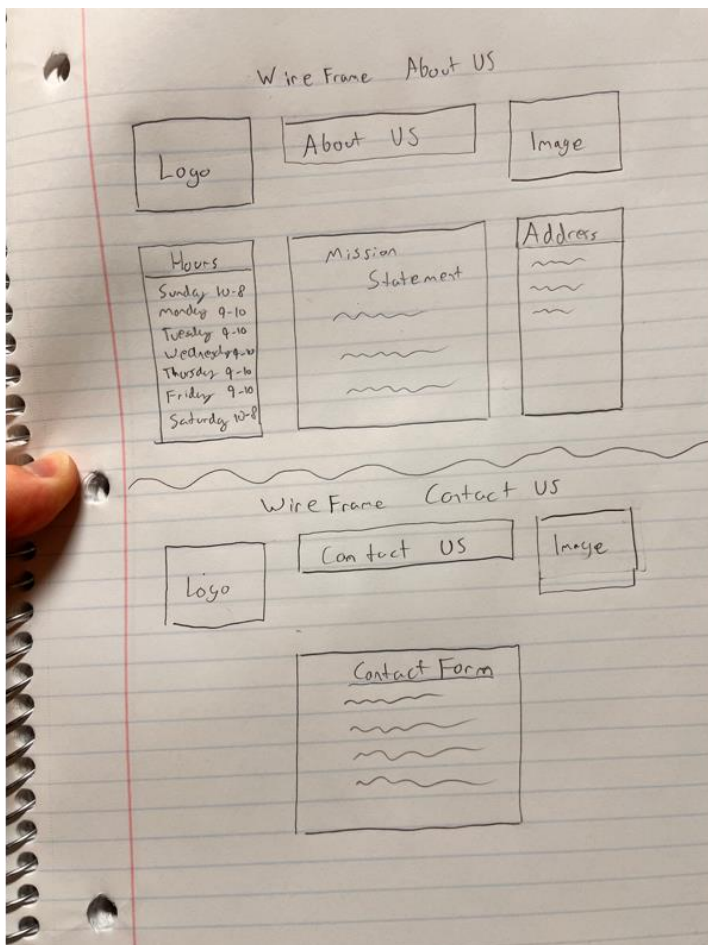 Wire Frame About US
Logo
About US
Image
Hours
Sunday 10-8
monday 9-10
Tuesday 9-10
Wednesday 9-10
Thursday 9-10
Friday 9-10
Saturday 10-8
Mission
Statement
Address
Wire Frame Contact US
Logo
Contact US
Image
Contact Form